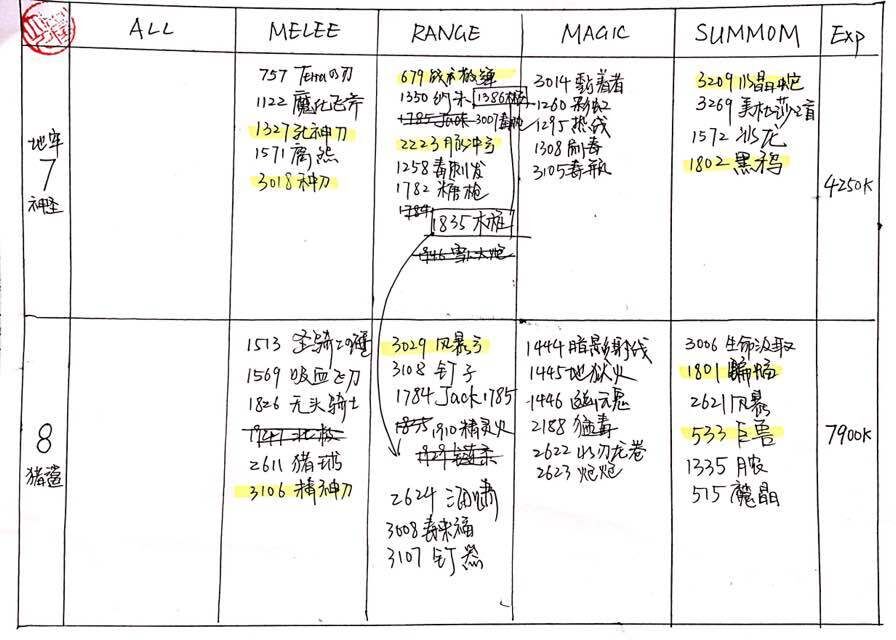 ALL MELEE RANGE MAGIC SUMMOM Exp
地牢
7
神圣
757 Terraの刃
1122
1327 死神刀
1571 腐
3018 神刀
679 战术散弹
1350 纳米 1386
1785 Jack 3007毒
2223 脉冲弓
1258 毒刺发
1782 糖枪
1784
1835 木桩
1946 雪人炮
3014
1260 彩虹
1295 热线
1308 剧毒
3105 毒瓶
3209 水晶蛇
3269 美杜莎之首
1572 冰龙
1802 黑鸦
4250K
8
猪鲨
1513 圣骑士の锤
1569 吸血飞刀
1826 无头骑士
1947 北极
2611 猪球
3106 精神刀
3029 风暴弓
3108 钉子
1784 Jack 1785
1835 1910 精灵火
1929 链
2624 海啸
3008 毒来福
3107 钉
1444 暗影射线
1445 地狱火
1446 幽灵
2188 猛毒
2622 水刃龙卷
2623 泡泡
3006 生命汲取
1801 蝙蝠
2621 风暴
533 巨兽
1335
515 魔晶
7900K